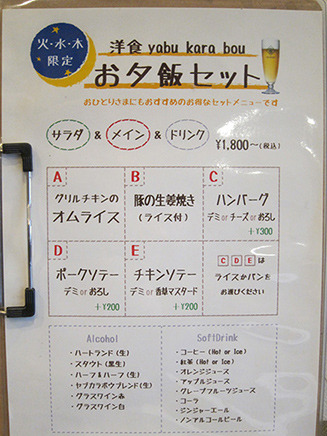 火・水・木
限定
洋食 yabu kara bou
お夕飯セット
おひとりさまにもおすすめのお得なセットメニューです
サラダ & メイン & ドリンク ¥1,800~(税込)
A
グリルチキンの
オムライス
B
豚の生姜焼き
(ライス付)
C
ハンバーグ
デミ or チーズ or おろし
+¥300
D
ポークソテー
デミ or おろし
+¥200
E
チキンソテー
デミ or 香草マスタード
+¥200
C D E は
ライスかパンを
お選びください
Alcohol
・ハートランド(生)
・スタウト(黒生)
・ハーフ&ハーフ(生)
・ヤブカラボウブレンド(生)
・グラスワイン赤
・グラスワイン白
SoftDrink
・コーヒー(Hot or Ice)
・紅茶(Hot or Ice)
・オレンジジュース
・アップルジュース
・グレープフルーツジュース
・コーラ
・ジンジャーエール
・ノンアルコールビール